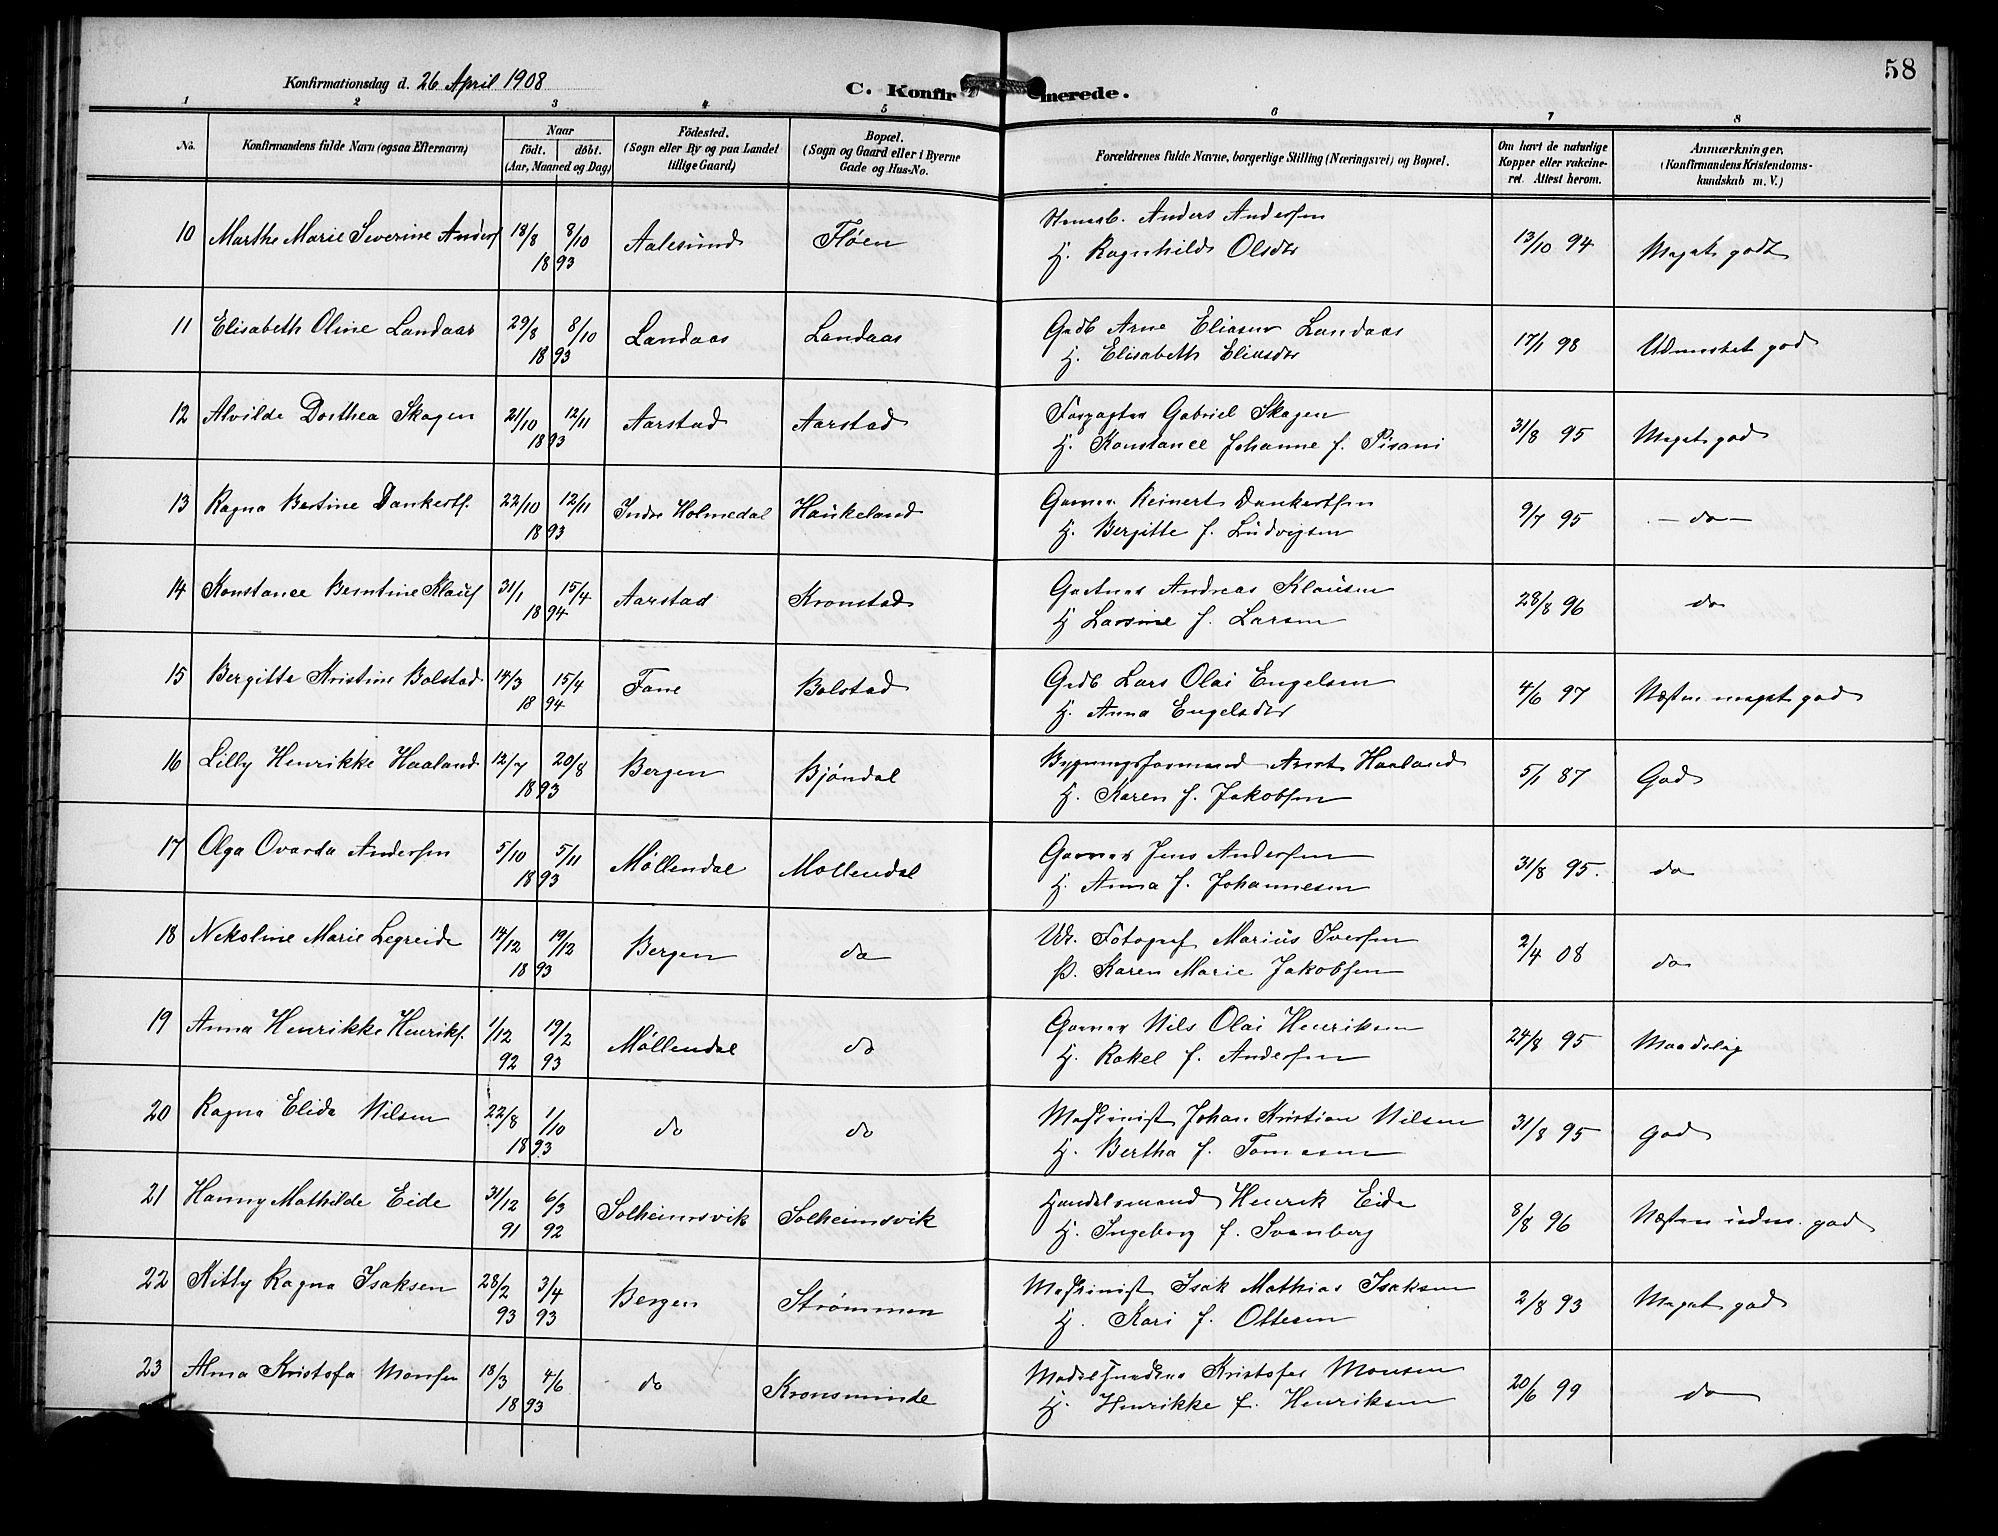 58
Konfirmationsdag d. 26 April 1908
C. Konfirmerede.
1 2 3 4 5 6 7 8
No. Konfirmandens fulde Navn (ogsaa Efternavn) Naar födt. döbt. (Aar, Maaned og Dag) Födested. (Sogn eller By og paa Landet tillige Gaard) Bopæl. (Sogn og Gaard eller i Byerne Gade og Hus-No. Forældrenes fulde Navne, borgerlige Stilling (Næringsvei) og Bopæl. Om havt de naturlige Kopper eller vakcineret. Attest herom. Anmærkninger, (Konfirmandens Kristendomskundskab m. V.)
10 Marthe Marie Severine Anders 18/8 8/10 1893 Aalesund Fløen Anders Andersen 13/10 94 Meget godt
H. Ragnhild Olsdtr
11 Elisabeth Oline Landaas 29/8 8/10 1893 Landaas Landaas Gdb Arne Eliasen Landaas 17/1 98 Udmerket god
H. Elisabeth Eliasdtr
12 Alvilde Dorthea Skagen 21/10 12/11 1893 Aarstad Aarstad Forpagter Gabriel Skagen 31/8 95 Meget god
H. Konstance Johanne f. Pisani
13 Ragna Bertine Dankerts. 22/10 12/11 1893 Indre Holmedal Haukeland Garver Reinert Dankertsen 9/7 95 - do -
H. Bergitte f. Ludvigsen
14 Konstance Berntine Klaus 31/1 15/4 1894 Aarstad Kronstad Gartner Andreas Klausen 28/8 96 do
H Larsine f. Larsen
15 Bergitte Kristine Bolstad 14/3 15/4 1894 Fane Bolstad Gdb Lars Olai Engelsen 4/6 97 Næsten meget god
H. Anna Engelsdtr
16 Lilly Henrikke Haaland 12/7 20/8 1893 Bergen Bjöndal Bygningsformand Arnt Haaland 5/1 87 God
H. Karen f. Jakobsen
17 Olga Ovarda Andersen 5/10 5/11 1893 Møllendal Møllendal Garver Jens Andersen 31/8 95. do
H. Anna f. Johannesen
18 Nekoline Marie Legreide 14/12 19/12 1893 Bergen do Fotograf Marius Iversen 2/4 08 do
P. Karen Marie Jakobsen
19 Anna Henrikke Henriks. 1/12 92 19/2 93 Møllendal do Garver Nils Olai Henriksen 24/8 95 Maadelig
H. Rakel f. Andersen
20 Ragna Elida Nilsen 22/8 1/10 1893 do do Maskinist Johan Kristian Nilsen 31/8 95 God
H. Bertha f. Tomesen
21 Hanny Mathilde Eide 31/12 91 6/3 92 Solheimsvik Solheimsvik Handelsmand Henrik Eide 8/8 96 Næsten udm. god
H. Ingeborg f. Svanberg
22 Kitty Ragna Isaksen 28/2 93 3/4 93 Bergen Strømmen Maskinist Isak Mathias Isaksen 2/8 93 Meget god
H. Kari f. Ottesen
23 Alma Kristofa Monsen 18/3 4/6 1893 do Kronsminde Kristofer Monsen 20/6 99 do
H. Henrikke f. Henriksen